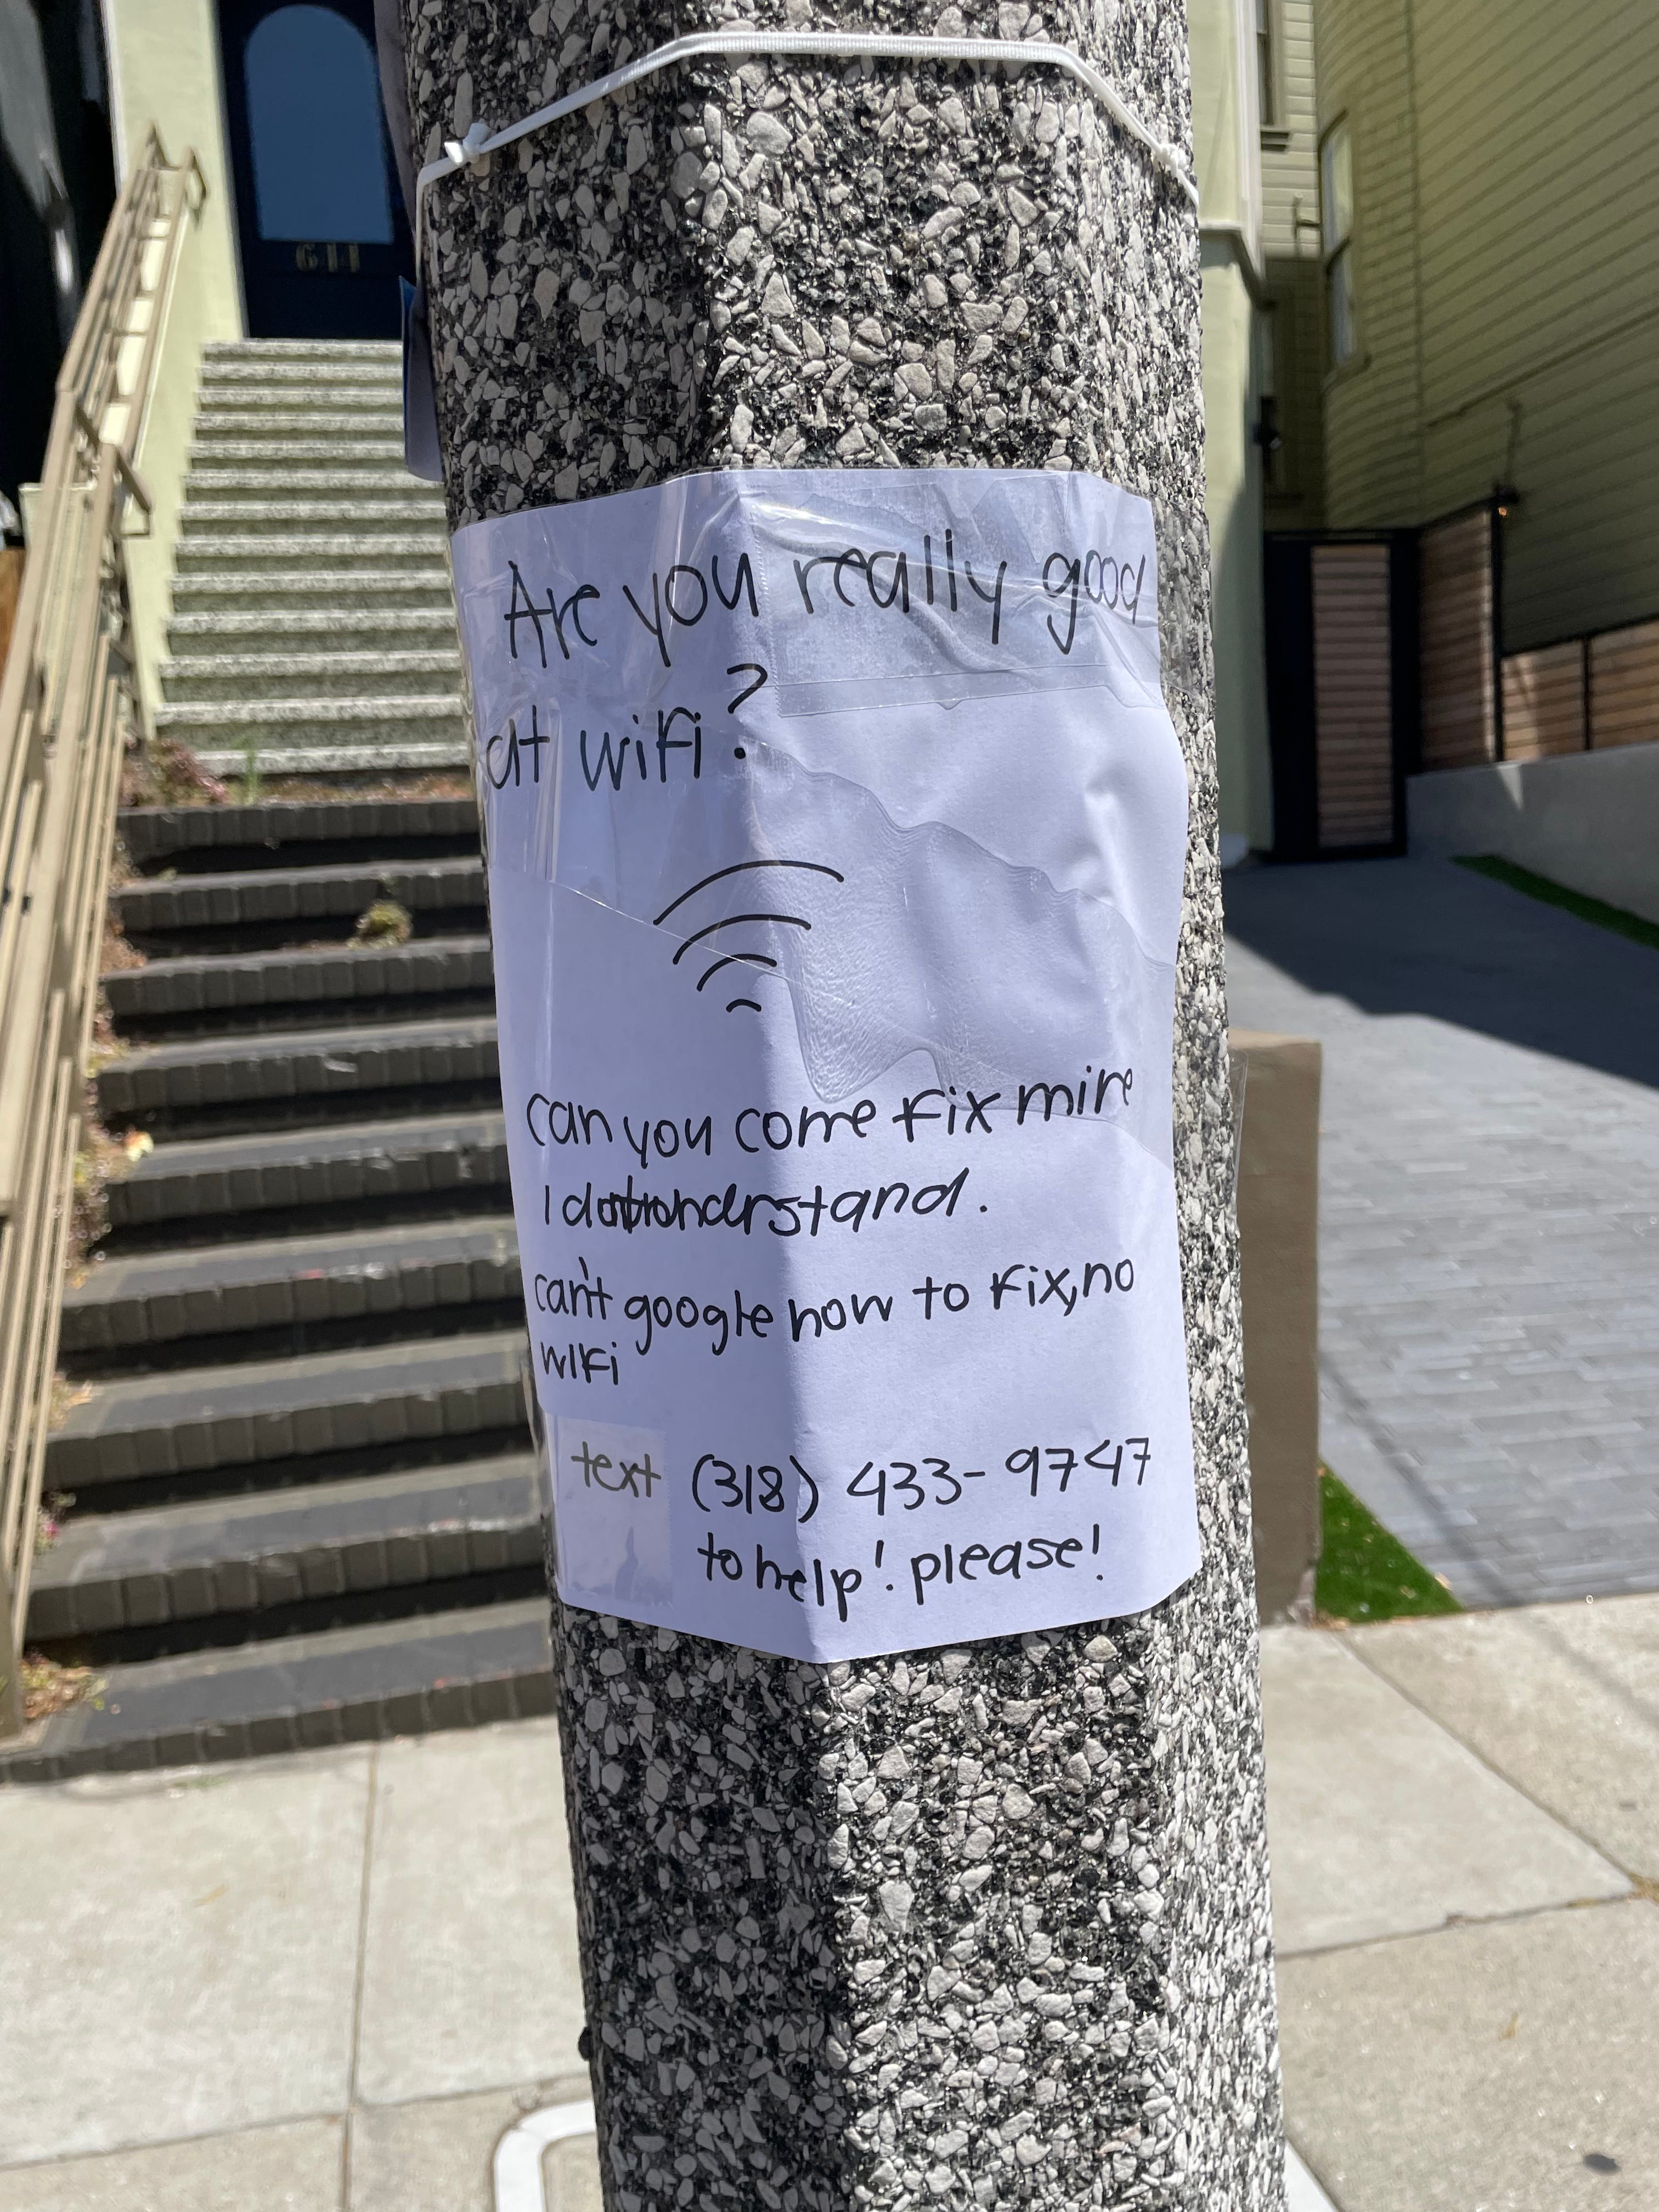 611
Are you really good
at wifi?
can you come fix mine
I do not understand.
can't google how to fix, no
wifi
text (318) 433-9747
to help! please!